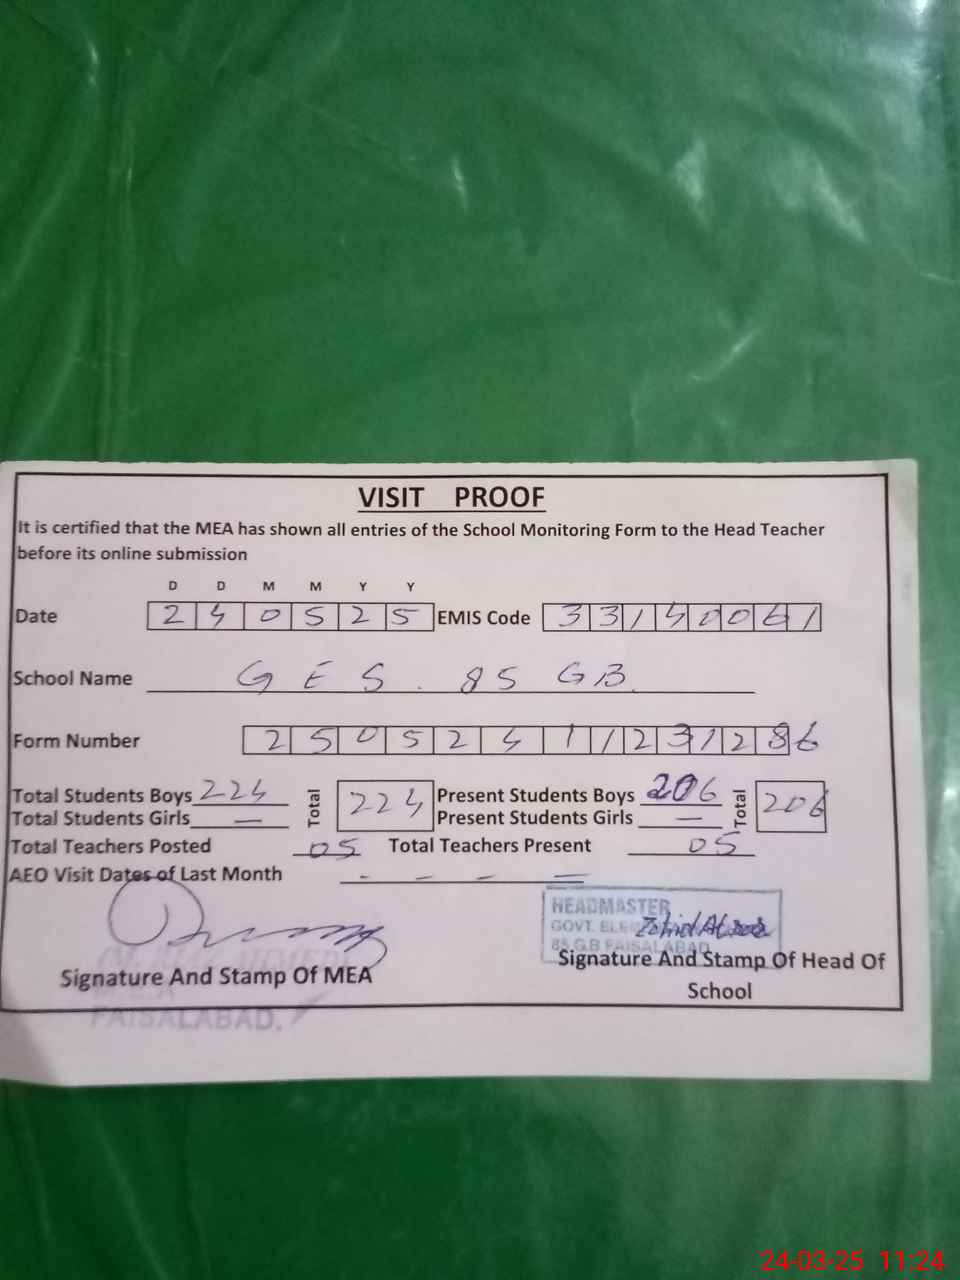 VISIT PROOF
It is certified that the MEA has shown all entries of the School Monitoring Form to the Head Teacher
before its online submission
D D M M Y Y
Date 2 4 0 5 2 5 EMIS Code 3 3 1 4 0 0 6 1
School Name G E S . 85 GB.
Form Number 2 5 0 5 2 4 1 1 2 3 1 2 8 6
Total Students Boys 224 Total 224 Present Students Boys 206 Total 206
Total Students Girls — Present Students Girls —
Total Teachers Posted 05 Total Teachers Present 05
AEO Visit Dates of Last Month - - - -
HEADMASTER
GOVT. Zahid
85 G.B FAISALABAD
Signature And Stamp Of MEA
Signature And Stamp Of Head Of
School
FAISALABAD.
24-03-25 11:24